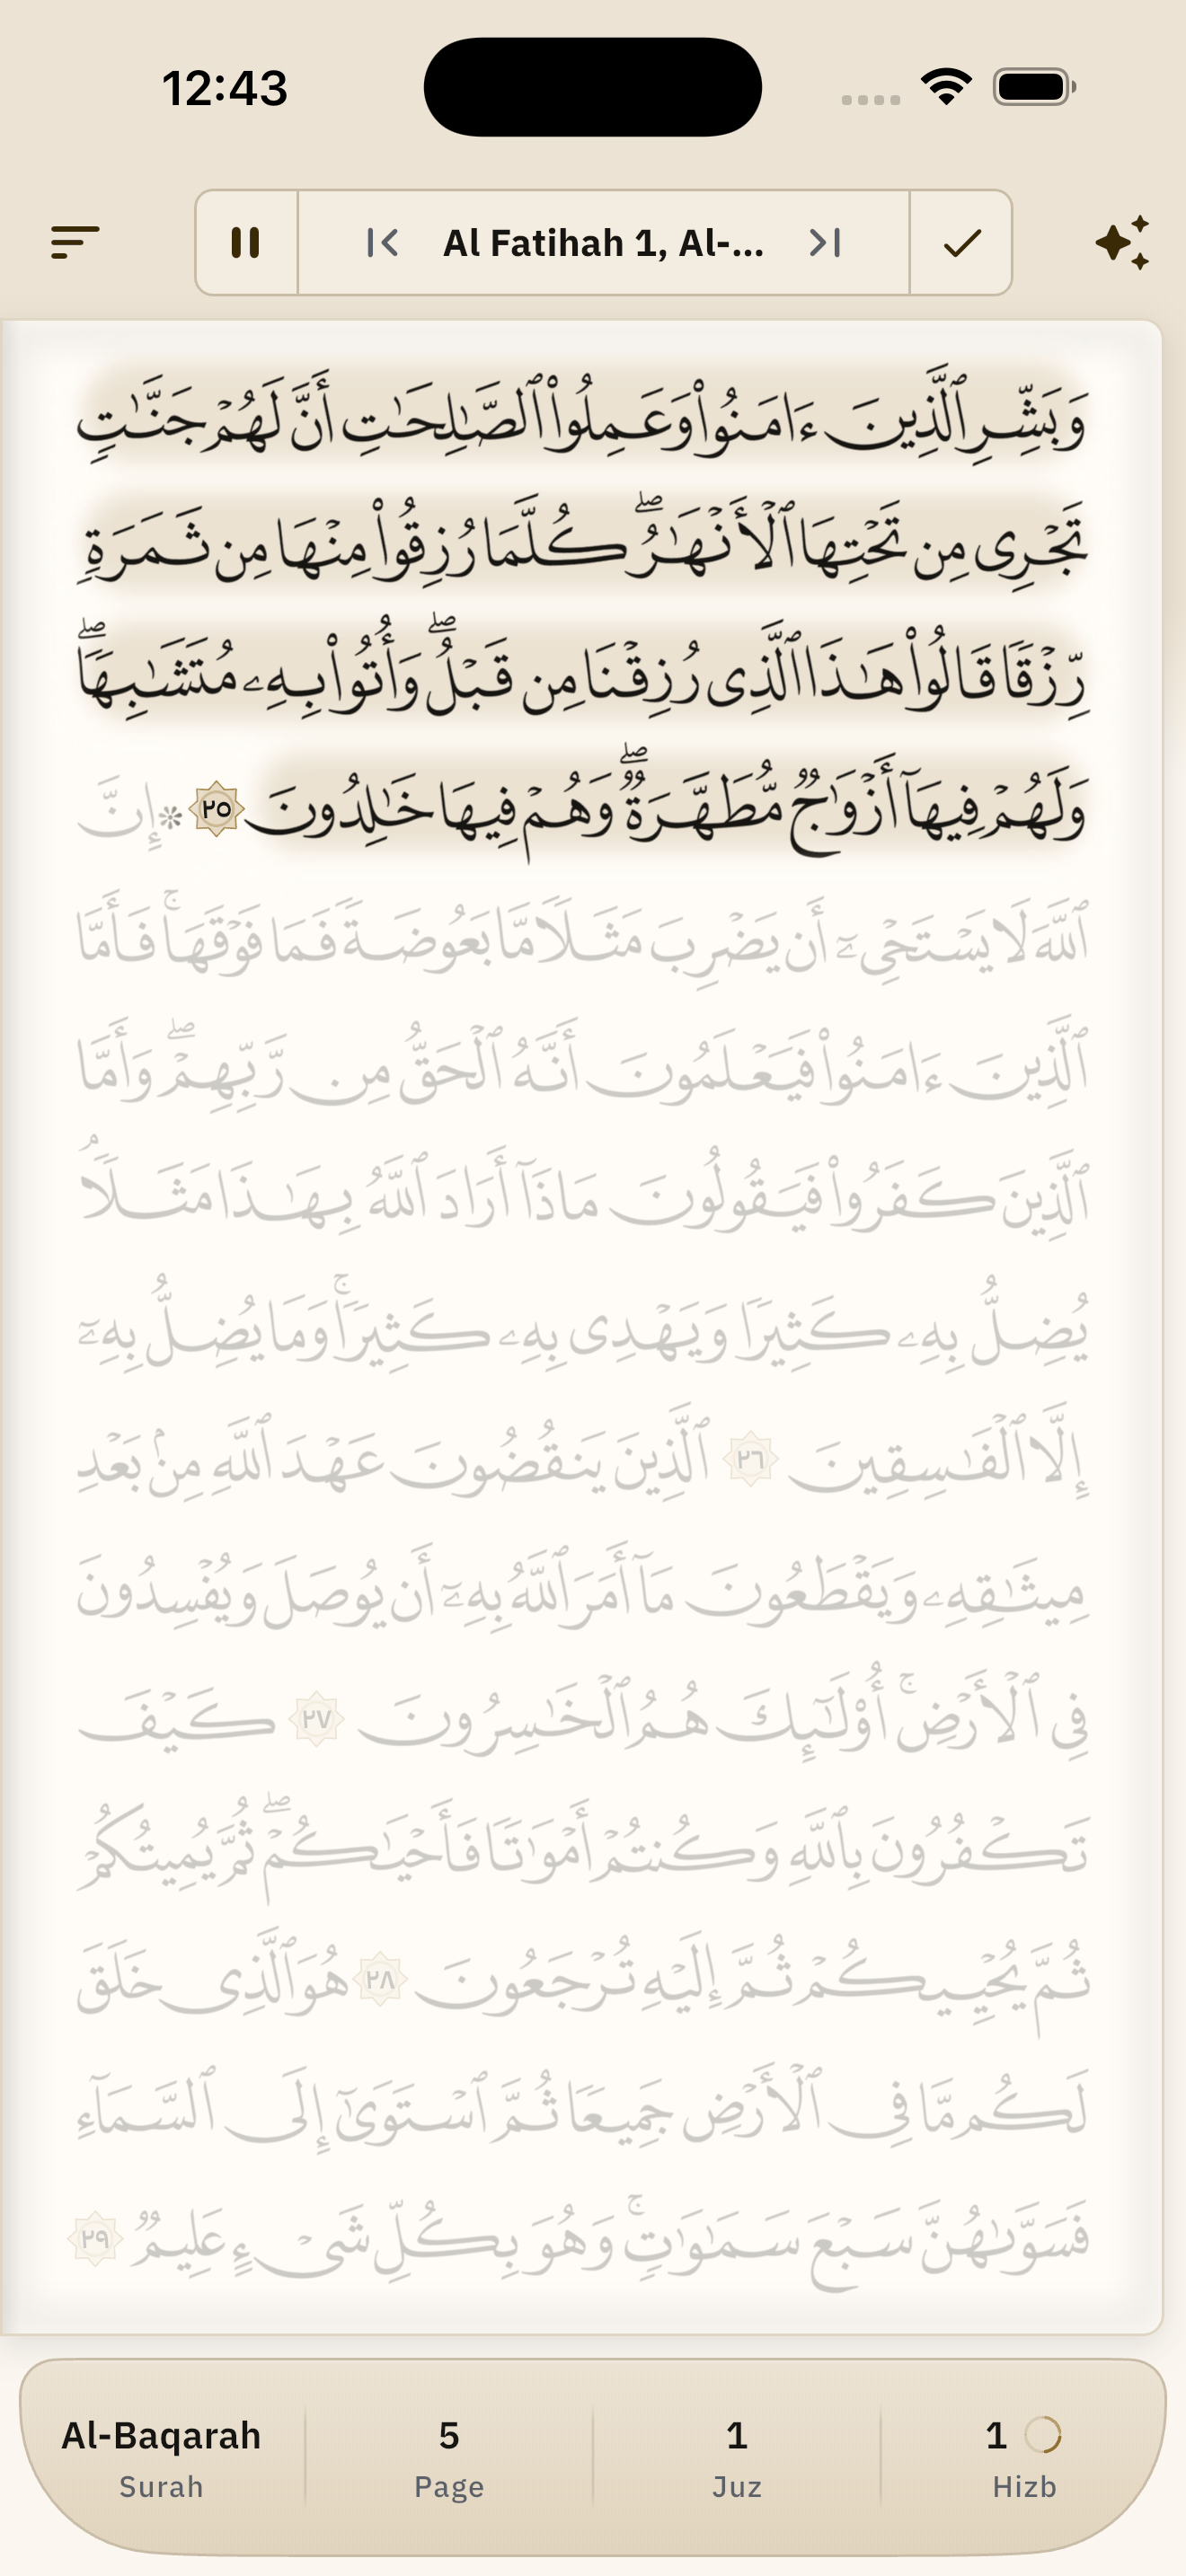 12:43
Al Fatihah 1, Al-...
وَبَشِّرِ ٱلَّذِينَ ءَامَنُوا۟ وَعَمِلُوا۟ ٱلصَّٰلِحَٰتِ أَنَّ لَهُمْ جَنَّٰتٍ
تَجْرِى مِن تَحْتِهَا ٱلْأَنْهَٰرُ ۖ كُلَّمَا رُزِقُوا۟ مِنْهَا مِن ثَمَرَةٍ
رِّزْقًا قَالُوا۟ هَٰذَا ٱلَّذِى رُزِقْنَا مِن قَبْلُ ۖ وَأُتُوا۟ بِهِۦ مُتَشَٰبِهًا ۖ
وَلَهُمْ فِيهَآ أَزْوَٰجٌ مُّطَهَّرَةٌ ۖ وَهُمْ فِيهَا خَٰلِدُونَ ٢٥ ❊ إِنَّ
ٱللَّهَ لَا يَسْتَحْىِۦٓ أَن يَضْرِبَ مَثَلًا مَّا بَعُوضَةً فَمَا فَوْقَهَا ۚ فَأَمَّا
ٱلَّذِينَ ءَامَنُوا۟ فَيَعْلَمُونَ أَنَّهُ ٱلْحَقُّ مِن رَّبِّهِمْ ۖ وَأَمَّا
ٱلَّذِينَ كَفَرُوا۟ فَيَقُولُونَ مَاذَآ أَرَادَ ٱللَّهُ بِهَٰذَا مَثَلًا ۘ
يُضِلُّ بِهِۦ كَثِيرًا وَيَهْدِى بِهِۦ كَثِيرًا ۚ وَمَا يُضِلُّ بِهِۦٓ
إِلَّا ٱلْفَٰسِقِينَ ٢٦ ٱلَّذِينَ يَنقُضُونَ عَهْدَ ٱللَّهِ مِنۢ بَعْدِ
مِيثَٰقِهِۦ وَيَقْطَعُونَ مَآ أَمَرَ ٱللَّهُ بِهِۦٓ أَن يُوصَلَ وَيُفْسِدُونَ
فِى ٱلْأَرْضِ ۚ أُو۟لَٰٓئِكَ هُمُ ٱلْخَٰسِرُونَ ٢٧ كَيْفَ
تَكْفُرُونَ بِٱللَّهِ وَكُنتُمْ أَمْوَٰتًا فَأَحْيَٰكُمْ ۖ ثُمَّ يُمِيتُكُمْ
ثُمَّ يُحْيِيكُمْ ثُمَّ إِلَيْهِ تُرْجَعُونَ ٢٨ هُوَ ٱلَّذِى خَلَقَ
لَكُم مَّا فِى ٱلْأَرْضِ جَمِيعًا ثُمَّ ٱسْتَوَىٰٓ إِلَى ٱلسَّمَآءِ
فَسَوَّىٰهُنَّ سَبْعَ سَمَٰوَٰتٍ ۚ وَهُوَ بِكُلِّ شَىْءٍ عَلِيمٌ ٢٩
Al-Baqarah 5 1 1
Surah Page Juz Hizb